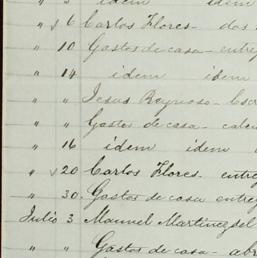 " " 3 idem idem
" " 6 Carlos Flores - dos
" 10 Gastos de casa - entre
" 14 idem idem
" " Jesus Reynoso - Esc
" " Gastos de casa -
" 16 idem idem
" 20 Carlos Flores - entre
" 30 Gastos de casa entre
Julio 3 Manuel Martinez del
" " Gastos de casa - abr